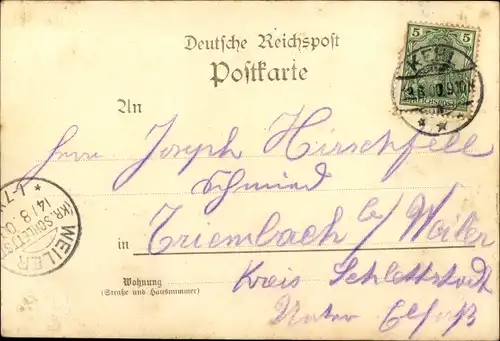 Deutsche Reichspost
Postkarte
5
KEHL
REICHSPOST
An
Herrn Joseph Hirschfell
Schmied
in Triembach b/ Weiler
Kreis Schlettstadt
Unter Elsaß
Wohnung
(Straße und Hausnummer)
WEILER
(KR. SCHLETTST
14/8